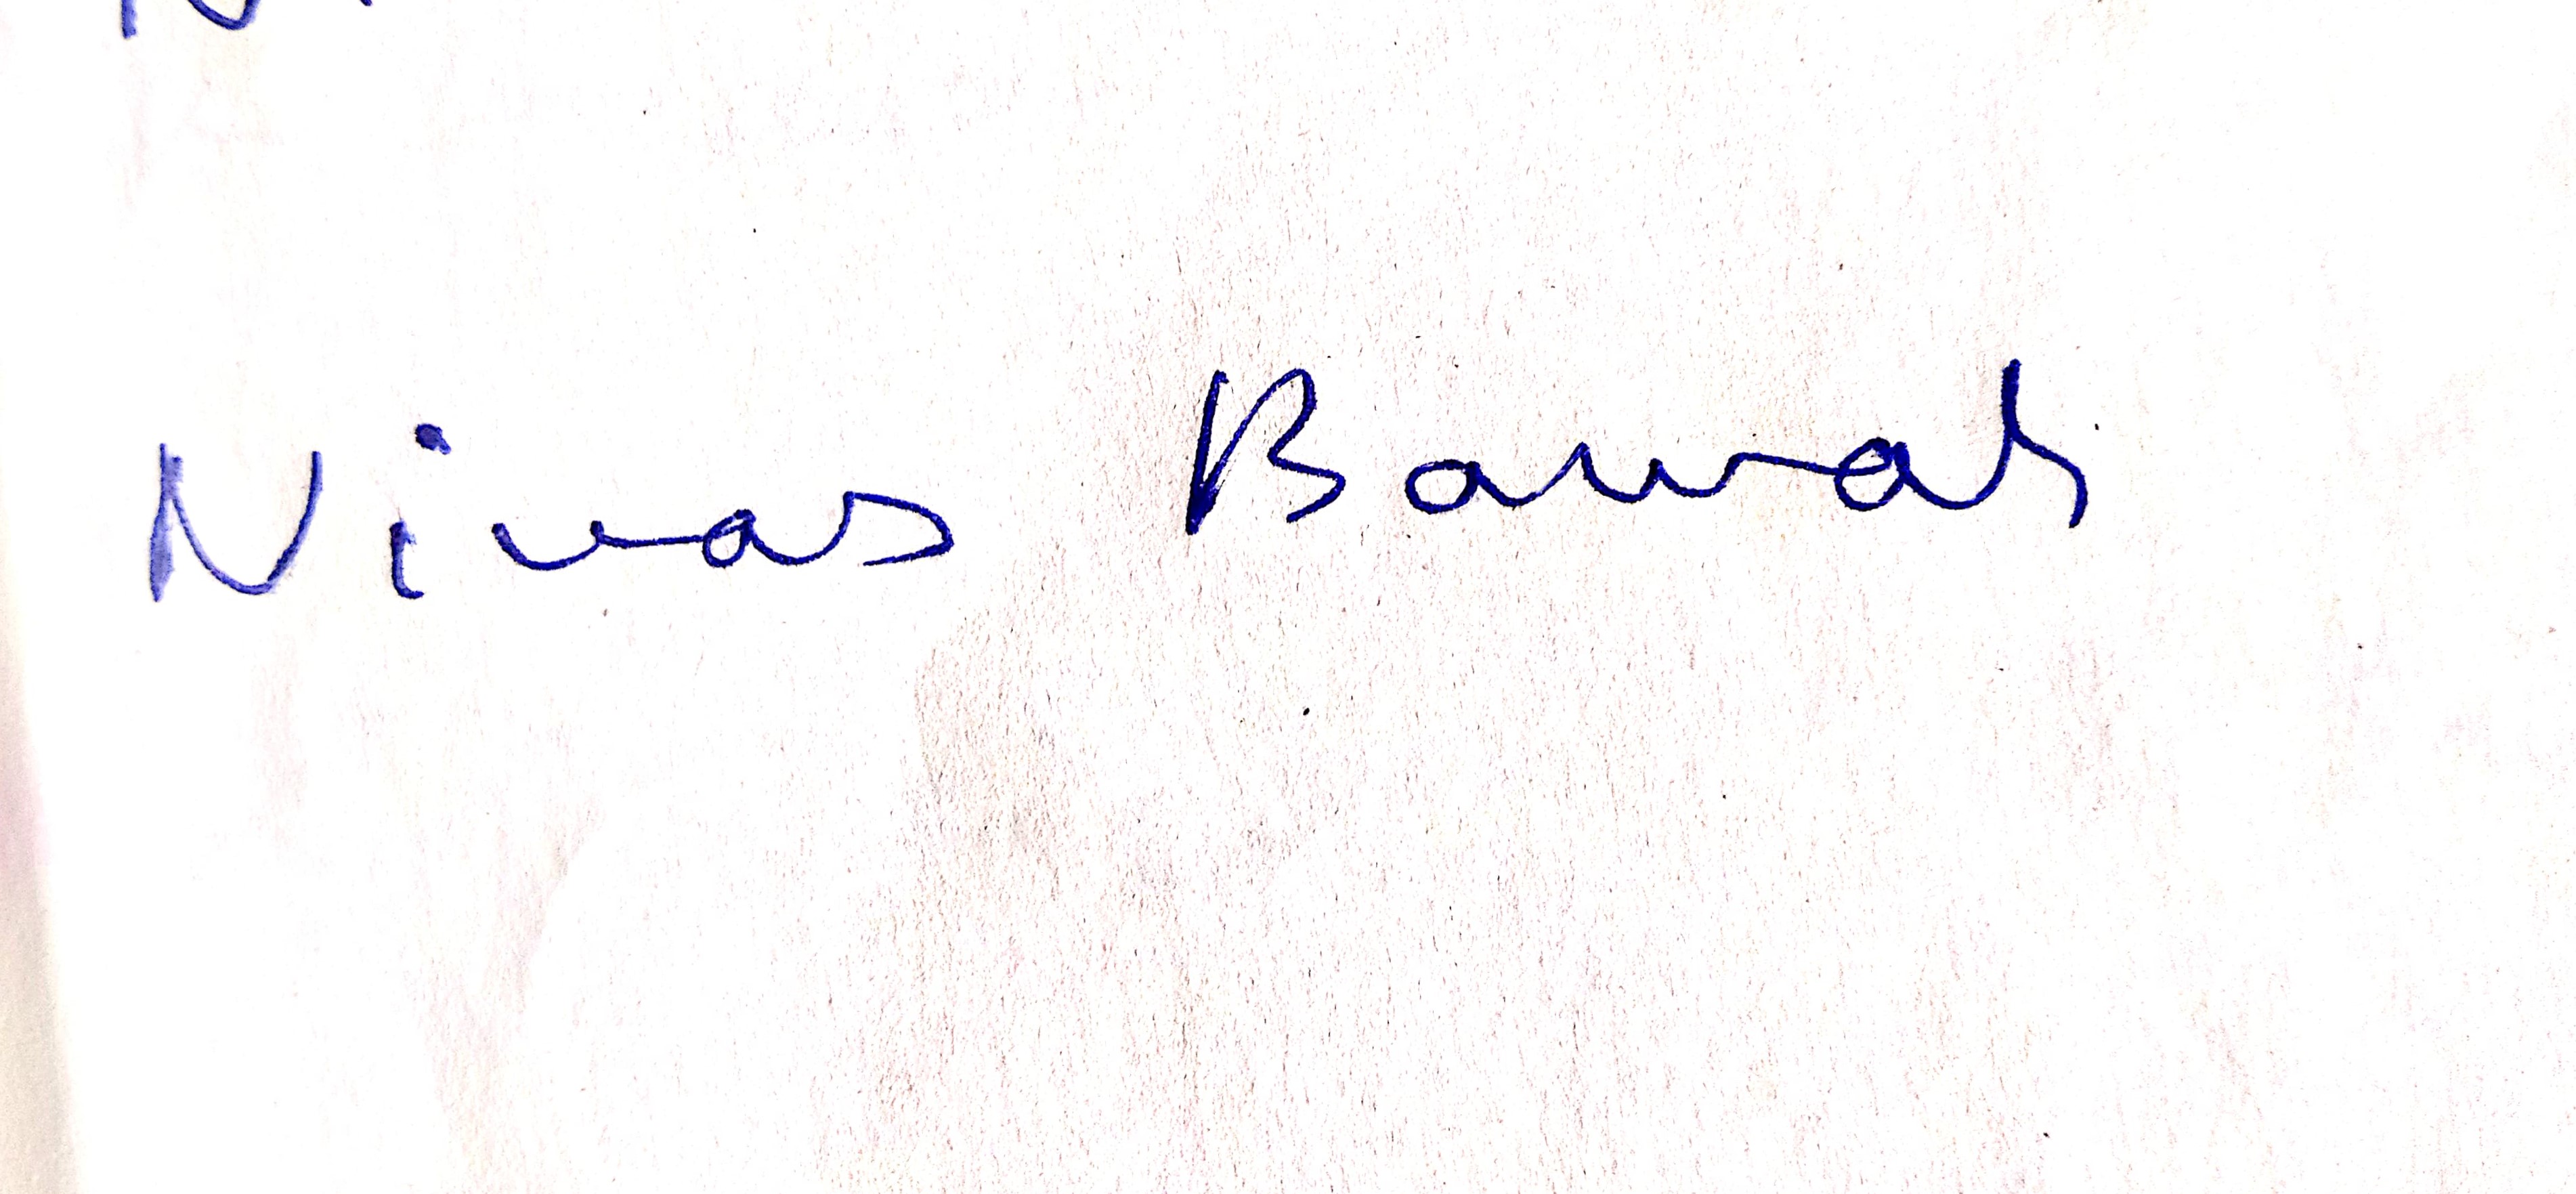 Nivas Bawah